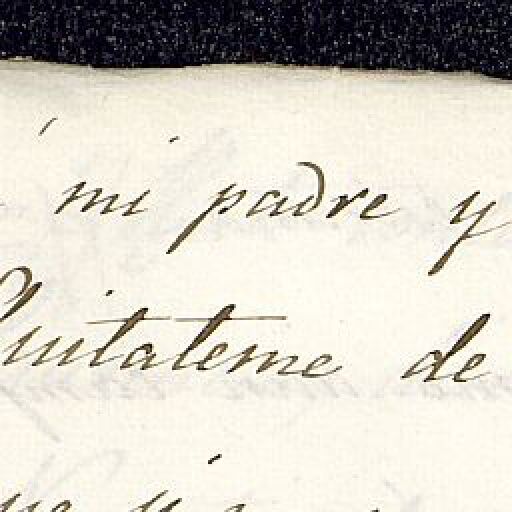 á mi padre y
Quitateme de